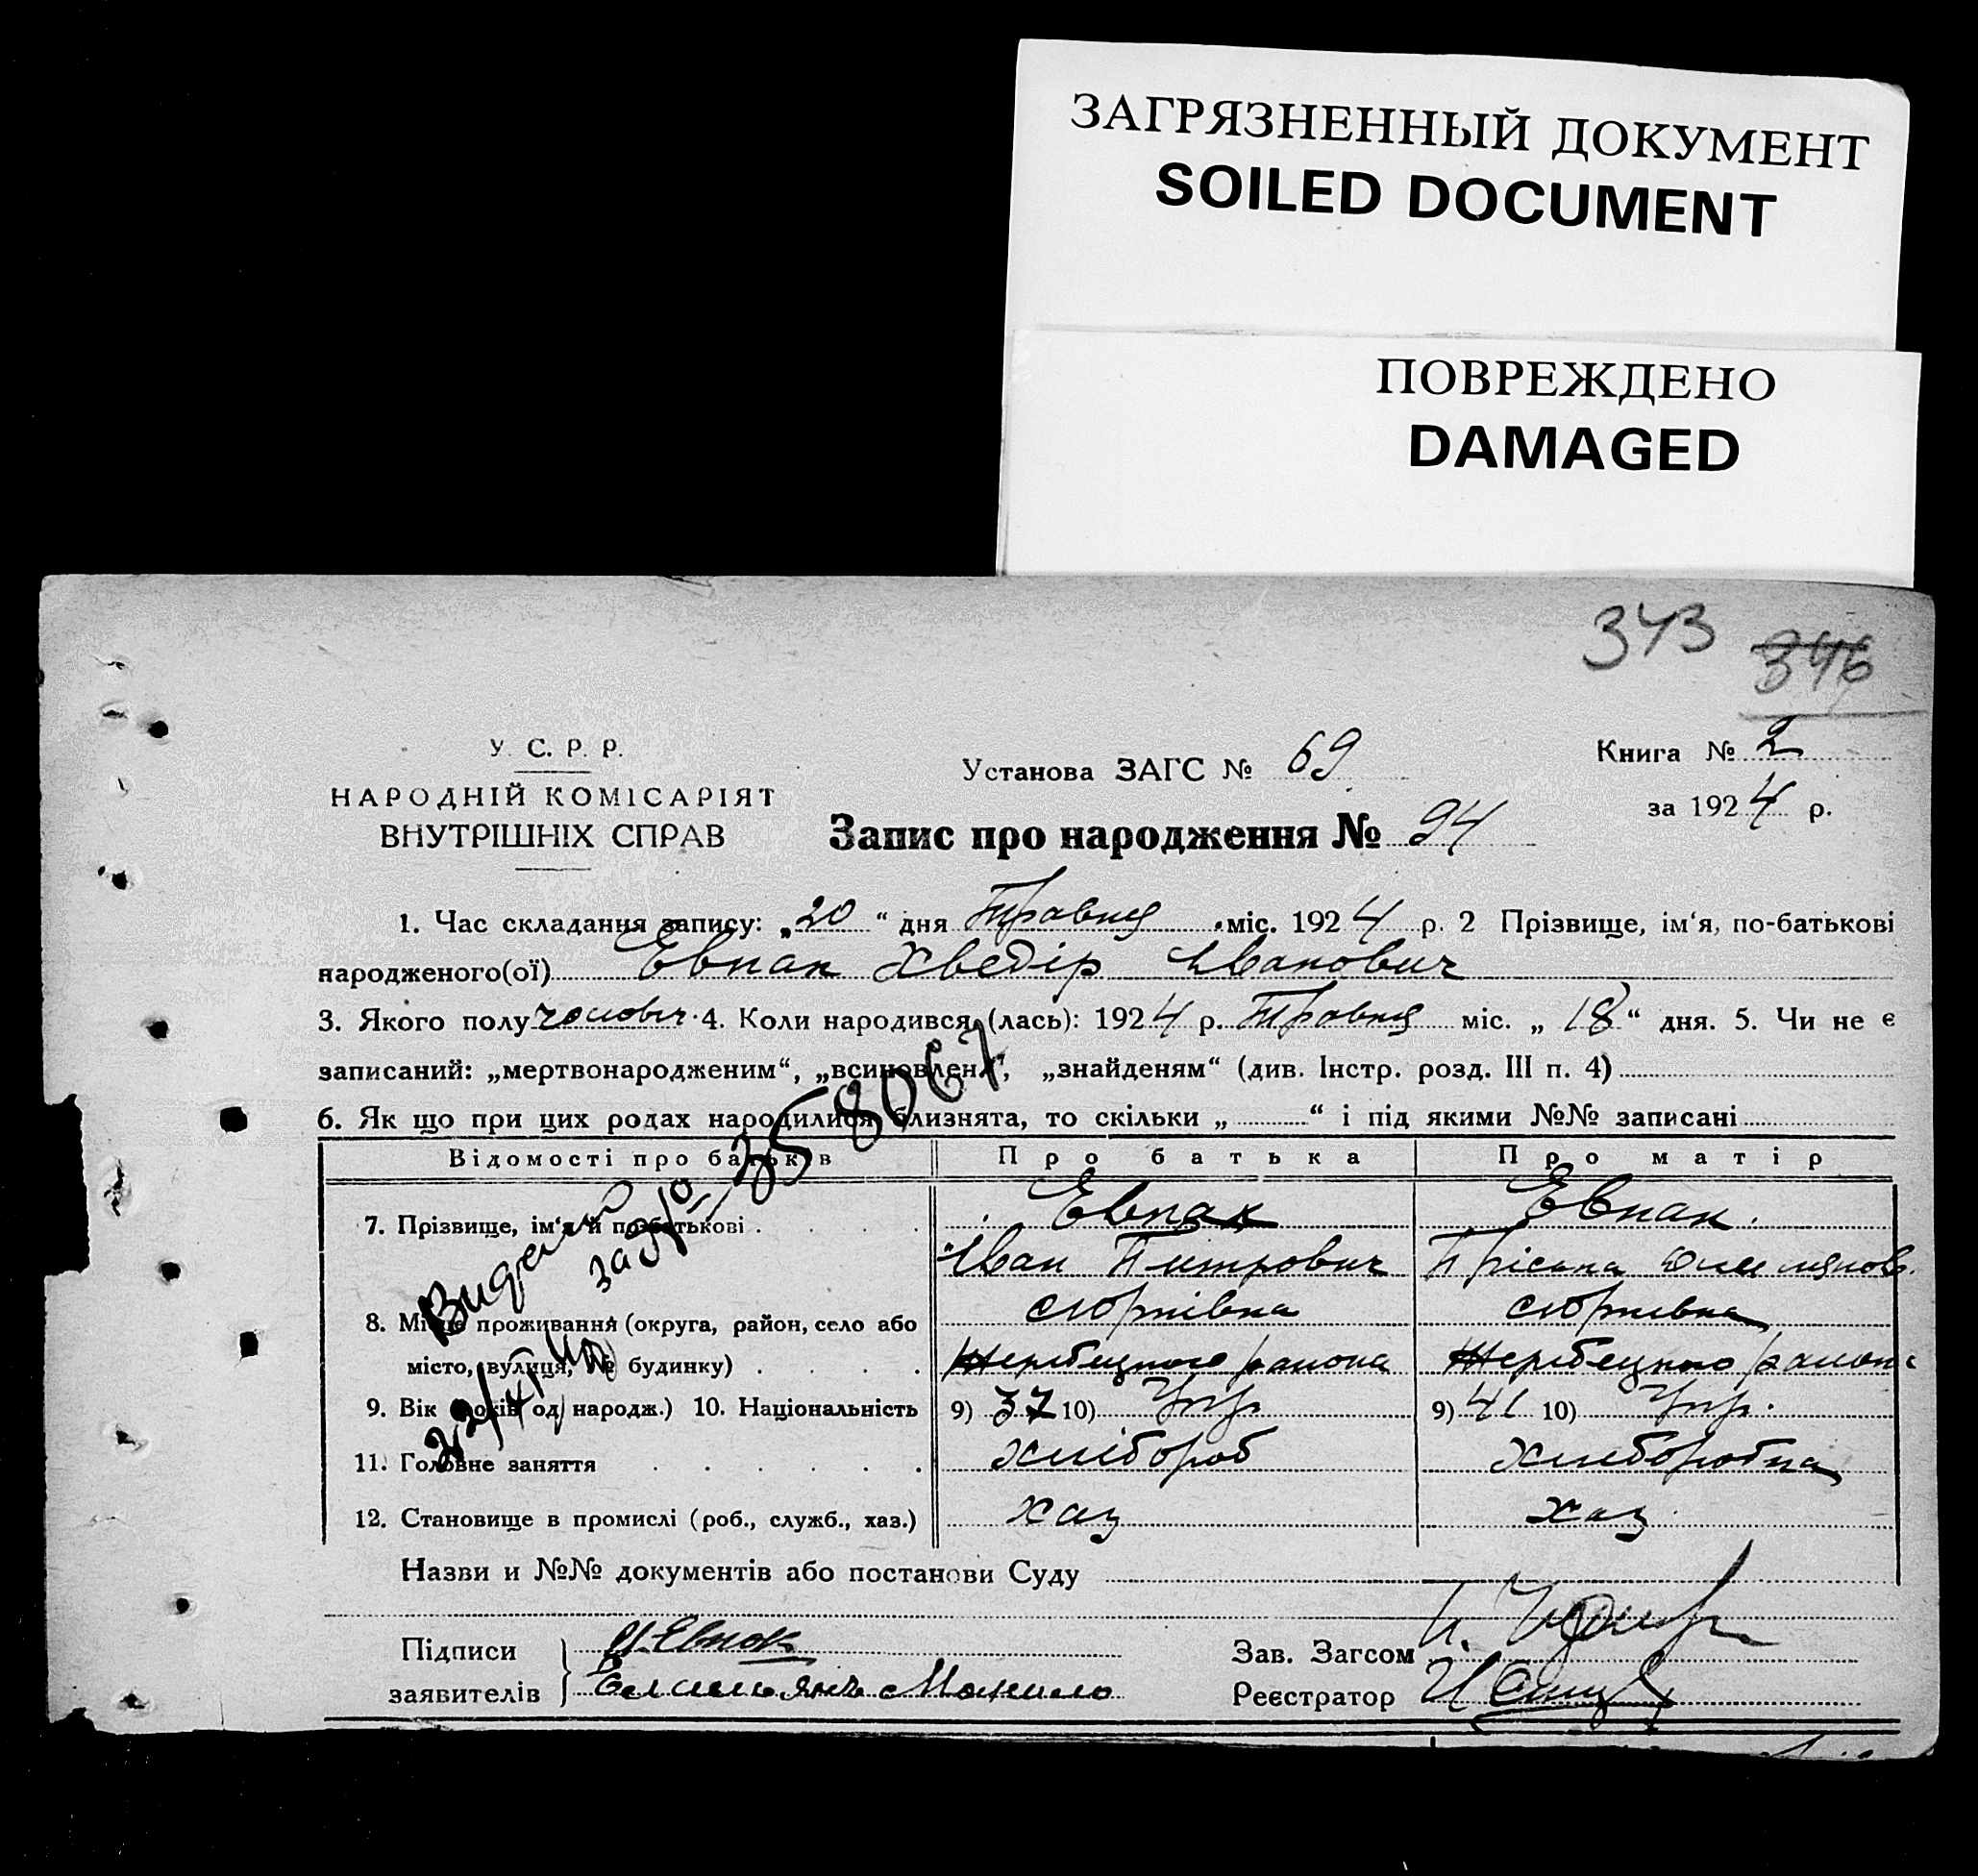 ЗАГРЯЗНЕННЫЙ ДОКУМЕНТ
SOILED DOCUMENT
ПОВРЕЖДЕНО
DAMAGED
343 346
У. С. Р. Р.
НАРОДНІЙ КОМІСАРІЯТ
ВНУТРІШНІХ СПРАВ
Установа ЗАГС № 69
Книга № 2
за 1924 р.
Запис про народження № 94
1. Час складання запису: „20“ дня Травня міс. 1924 р. 2 Прізвище, ім‘я, по-батькові
народженого(ої) Евпак Хведір Иванович
3. Якого полу чоловіч. 4. Коли народився (лась): 1924 р. Травня міс. „18“ дня. 5. Чи не є
записаний: „мертвонародженим“, „всиновлен.“, „знайденям“ (див. Інстр. розд. III п. 4)
6. Як що при цих родах народилися близнята, то скільки „ “ і під якими №№ записані
Відомості про батьків Про батька Про матір
7. Прізвище, ім‘я й по-батькові Евпак Евпак.
Иван Питрович Пріська
8. Місце проживання (округа, район, село або
місто, вулиця, № будинку) Жеребецкого района Жеребецкого района
9. Вік (років од народж.) 10. Національність 9) 37 10) Укр 9) 41 10) Укр.
11. Головне заняття хлібороб хлеборобка
12. Становище в промислі (роб., служб., хаз.) хаз хаз
Видано
за № 358067
Назви и №№ документів або постанови Суду
Підписи
заявителів
И. Евпак
Емельянъ Мокило
Зав. Загсом
Реєстратор